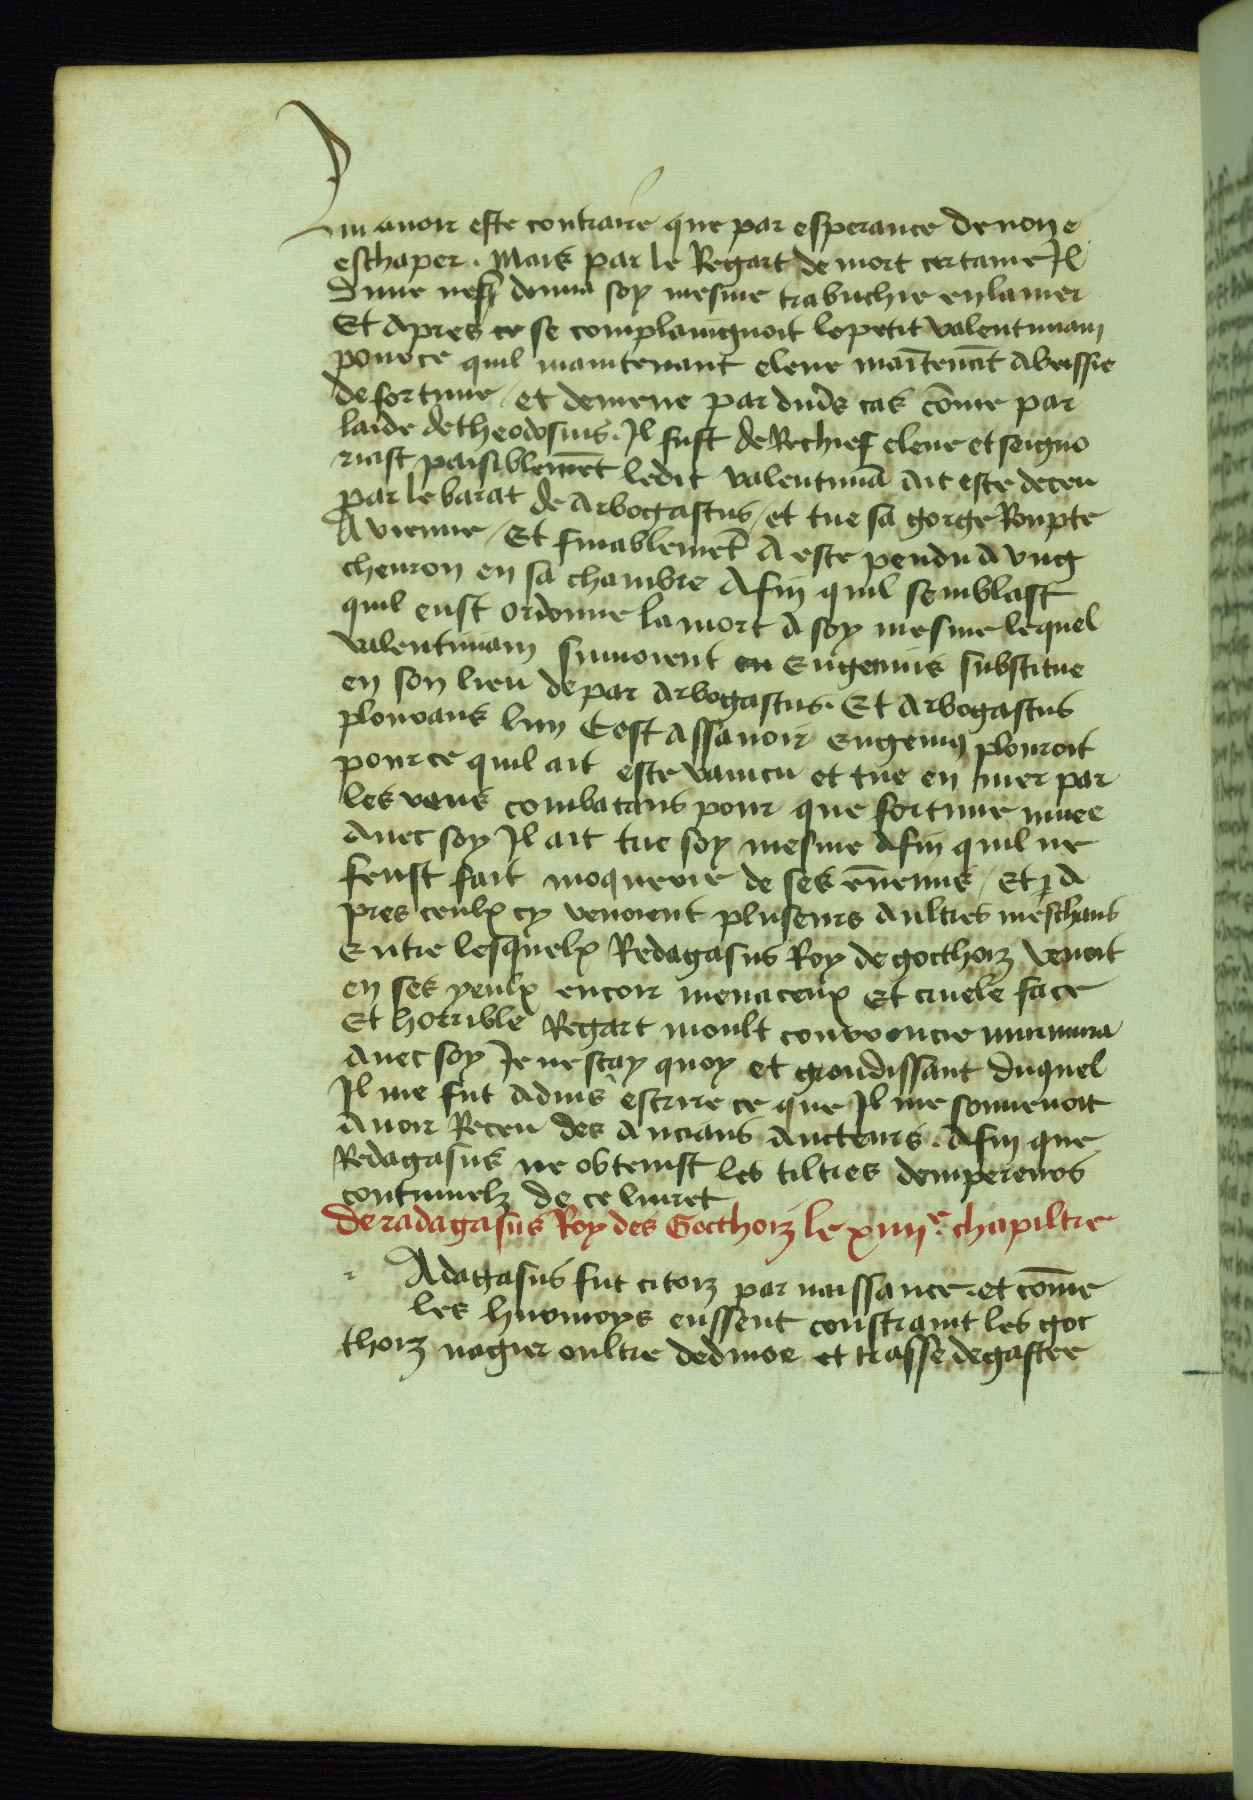 luy auoir este contraire que par esperance de non
eschaper . Mais par le Regart de mort certaine Jl
dune nef donna soy mesme trabuchie en la mer
Et Apres ce se complaingnoit le petit valentiniam
pource quil maintenant eleue maītenāt Abeissie
de fortune / et demene par diu̅s cas cōme par
laide de theodosius . Jl fust de Rechief eleue et seigno
riast paisiblemēt ledit valentiniā Ait este deceu
par le barat de Arbogastus / et tue sa gorge Ronpte
A vienne / Et finablemēt A este pendu A vng
cheuron en sa chambre Afin quil semblast
quil eust ordonne la mort A soy mesme lequel
valentiniam suiuoient eu Eugenius substitue
en son lieu de par Arbogastus . Et Arbogastus
plourans lun Cest Assauoir Eugeniꝰ plouroit
pource quil ait este vaincu et tue en mer par
les vens combatans pour que fortune muee
Auec soy Jl ait tue soy mesme Afin quil ne
feust fait moquerie de ses ēnemis / Et A
pres ceulx cy venoient pluseurs Aultres meschans
Entre lesquelx Redagasus Roy de gotthoiz venoit
en ses yeulx encor menaceux Et cruele face
Et horrible Regart moult convoncie murmura
Auec soy Je ne scay quoy et grondissant duquel
Jl me fut Aduis escrire ce que Jl me souuenoit
Auoir Receu des Ancians Aucteurs . Afin que
Redagasus ne obtenist les tiltres demperenos
contumelz de ce liuret
De radagasus Roy des Gotthoiz le xiiiiᵉ . chapiltre
r Adagasus fut citoiz par naissance . et cōme
les hunnoys eussent constraint les got
thoiz nagier oultre dednoe et trasse degaster